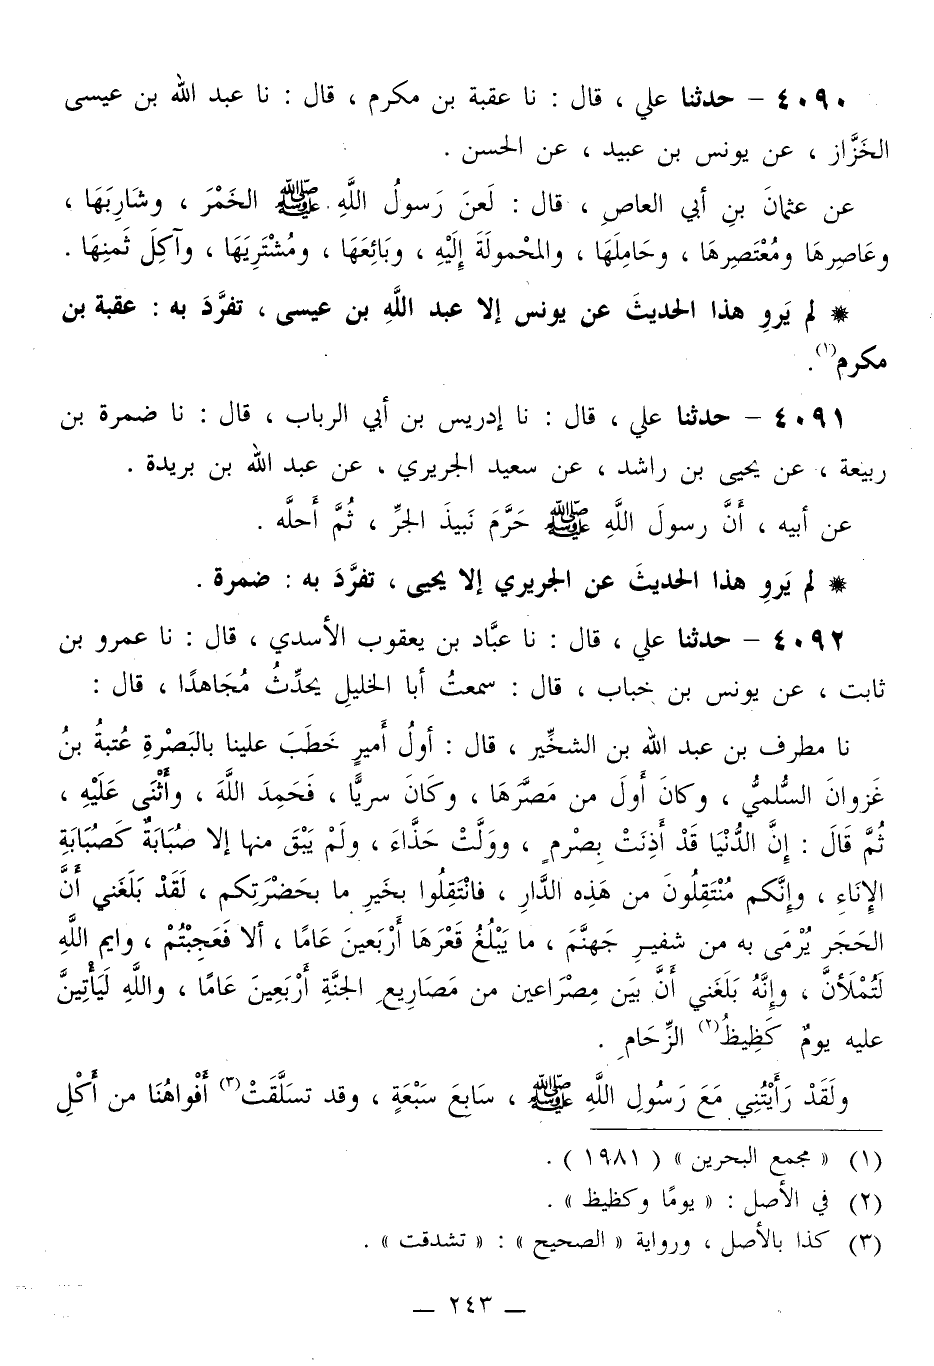 ٤٠٩٠ – حدثنا علي ، قال : نا عقبة بن مكرم ، قال : نا عبد الله بن عيسى
الخَزَّاز ، عن يونس بن عبيد ، عن الحسن .
عن عثمانَ بنِ أبي العاصِ ، قال : لَعنَ رَسولُ اللَّهِ ﷺ الخَمْرَ ، وشَارِبَهَا ،
وعَاصِرهَا ومُعْتَصِرهَا ، وحَامِلَهَا ، والمحْمولَةَ إِلَيْهِ ، وبَائِعَهَا ، ومُشْتَرِيَهَا ، وآكِلَ ثَمنِهَا .
* لم يَروِ هذا الحديثَ عن يونس إلا عبد اللَّهِ بن عيسى ، تفرَّدَ به : عقبة بن
مكرم(١).
٤٠٩١ – حدثنا علي ، قال : نا إدريس بن أبي الرباب ، قال : نا ضمرة بن
ربيعة ، عن يحيى بن راشد ، عن سعيد الجريري ، عن عبد الله بن بريدة .
عن أبيه ، أَنَّ رسولَ اللَّهِ ﷺ حَرَّمَ نَبيذَ الجرِّ ، ثُمَّ أَحله .
* لم يَروِ هذا الحديثَ عن الجريري إلا يحيى ، تفرَّدَ به : ضمرة .
٤٠٩٢ – حدثنا علي ، قال : نا عبَّاد بن يعقوب الأسدي ، قال : نا عمرو بن
ثابت ، عن يونس بن خباب ، قال : سمعتُ أبا الخليلِ يحدِّثُ مُجَاهدًا ، قال :
نا مطرف بن عبد الله بن الشخِّير ، قال : أولُ أَميرٍ خَطَبَ علينا بالبَصْرةِ عُتبةُ بنُ
غَزوانَ السُّلميُّ ، وكانَ أَولَ من مَصَّرَهَا ، وكَانَ سريًّا ، فَحَمِدَ اللَّهَ ، وأَثْنَى عَلَيْهِ ،
ثُمَّ قَالَ : إِنَّ الدُّنْيَا قَدْ أَذِنَتْ بِصْرمٍ ، وولَّتْ حَذَّاءَ ، ولَمْ يَبْقَ منها إلا صُبَابَةٌ كَصُبَابَةِ
الإِنَاءِ ، وإِنَّكم مُنْتَقِلُونَ من هَذِه الدَّارِ ، فانْتَقِلُوا بخَيرِ ما بحَضْرَتِكم ، لَقَدْ بَلَغَني أَنَّ
الحَجَر يُرْمَى به من شفيرِ جَهنَّمَ ، ما يَبْلُغُ قَعْرَهَا أَرْبَعينَ عَامًا ، ألا فَعَجِبْتُمْ ، وايم اللَّهِ
لَتُمْلَأنَّ ، وإِنَّهُ بَلَغَني أَنَّ بَين مِصْرَاعين من مَصَاريعِ الجنَّةِ أَرْبَعِينَ عَامًا ، واللَّهِ لَيَأْتِينَّ
عليه يومٌ كَظِيظُ(٢) الزِّحَامِ .
ولَقَدْ رَأَيْتُنِي مَعَ رَسُولِ اللَّهِ ﷺ ، سَابِعَ سَبْعَةٍ ، وقد تسَلَّقَتْ(٣) أَفْواهُنَا من أَكْلِ
(١) « مجمع البحرين » ( ١٩٨١ ) .
(٢) في الأصل : « يومًا وكظيظ » .
(٣) كذا بالأصل ، ورواية « الصحيح » : « تشدقت » .
— ٢٤٣ —